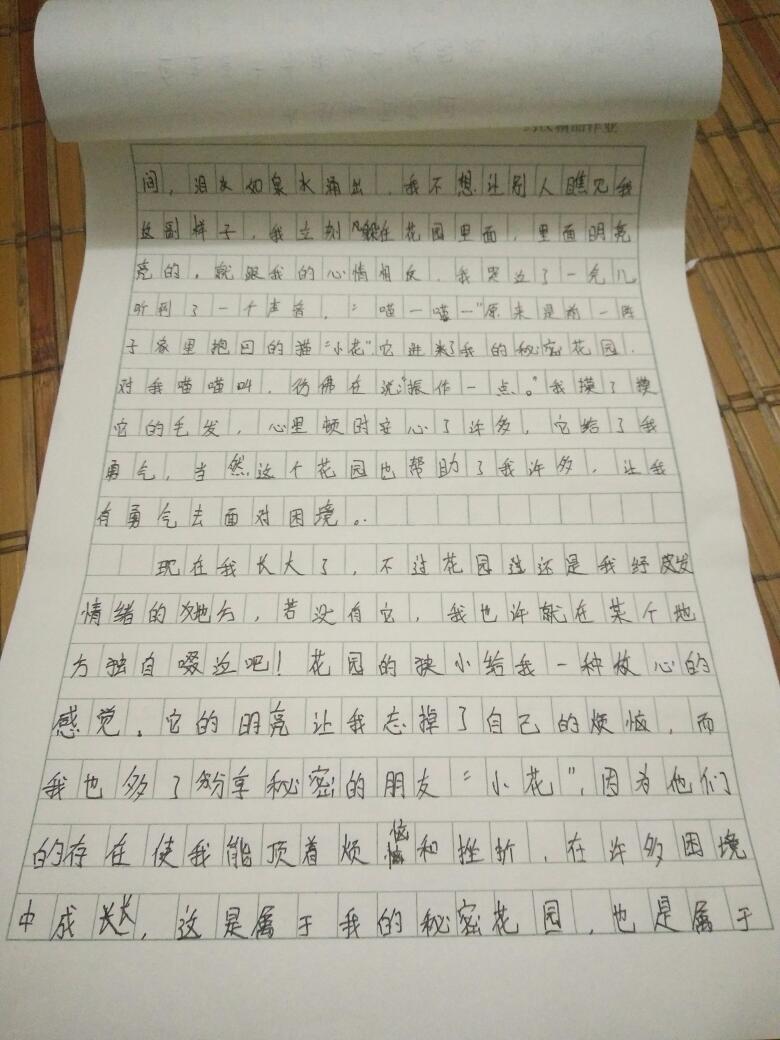 间，泪水如泉水涌出，我不想让别人瞧见我
这副样子，我立刻躲在花园里面，里面明亮
亮的，就跟我的心情相反，我哭泣了一会儿
听到了一个声音，“喵一喵一”原来是前一阵
子家里抱回的猫“小花”它进来了我的秘密花园，
对我喵喵叫，仿佛在说：“振作一点。”我摸了摸
它的毛发，心里顿时安心了许多，它给了我
勇气，当然这个花园也帮助了我许多，让我
有勇气去面对困境。
现在我长大了，不过花园这还是我纾发
情绪的地方，若没有它，我也许就在某个地
方独自啜泣吧！花园的狭小给我一种放心的
感觉，它的明亮让我忘掉了自己的烦恼，而
我也多了分享秘密的朋友“小花”，因为他们
的存在使我能顶着烦恼和挫折，在许多困境
中成长，这是属于我的秘密花园，也是属于